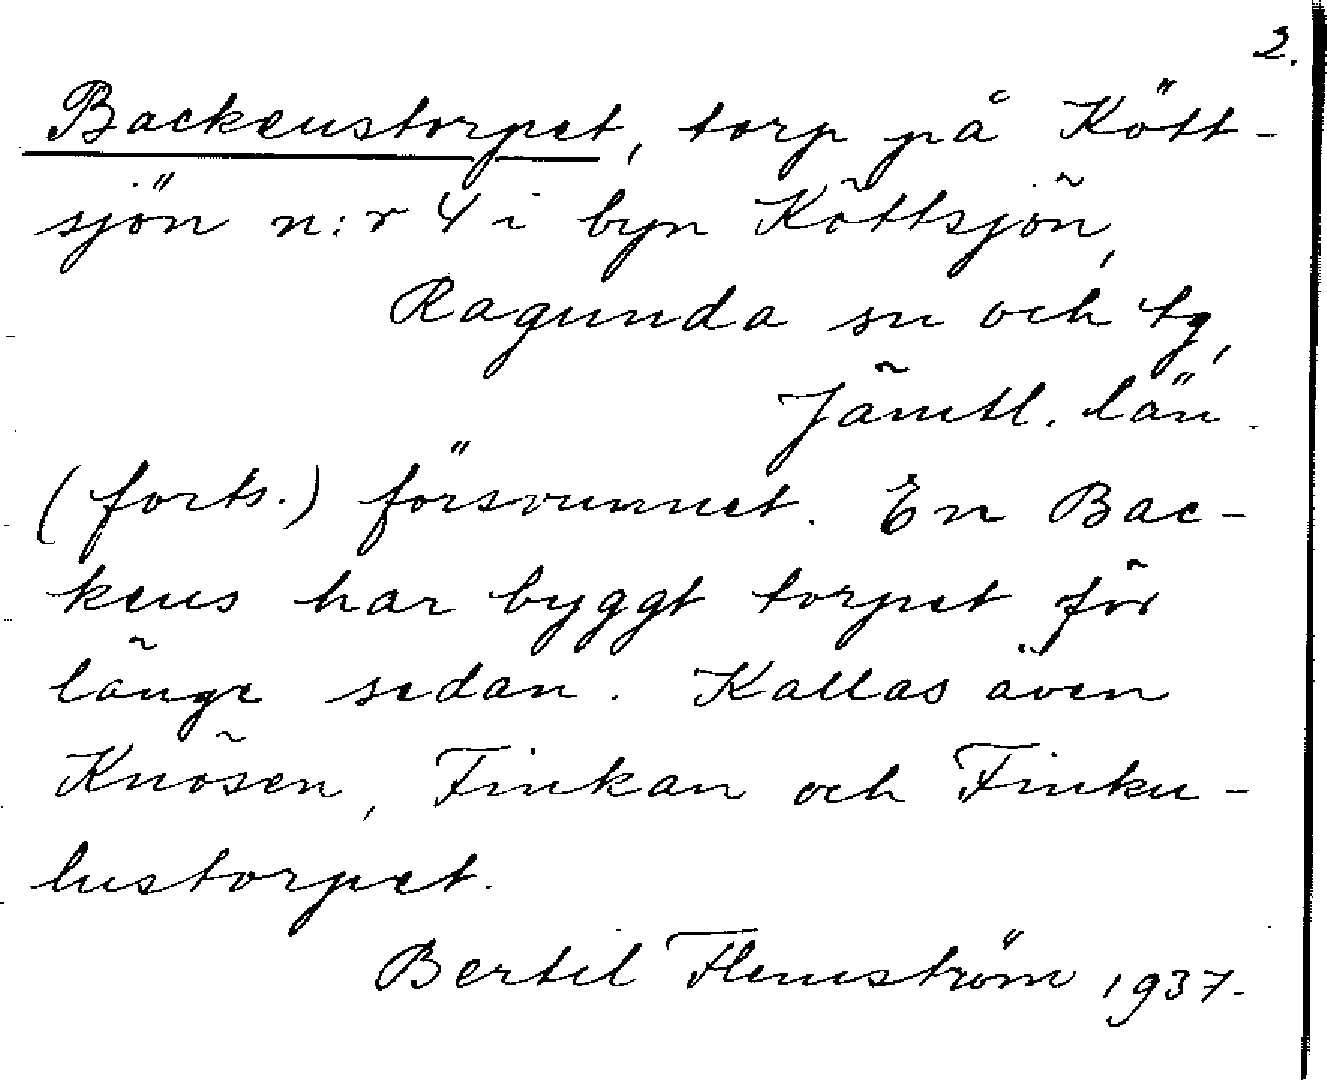 2.
Backenstorpet, torp på Kött-
sjön n:r 4 i byn Köttsjön,
Ragunda sn och tg,
Jämtl. län.
(forts.) försvunnet. En Bac-
kens har byggt torpet för
länge sedan. Kallas även
Knösen, Finkan och Finku-
lustorpet.
Bertil Flemström 1937.